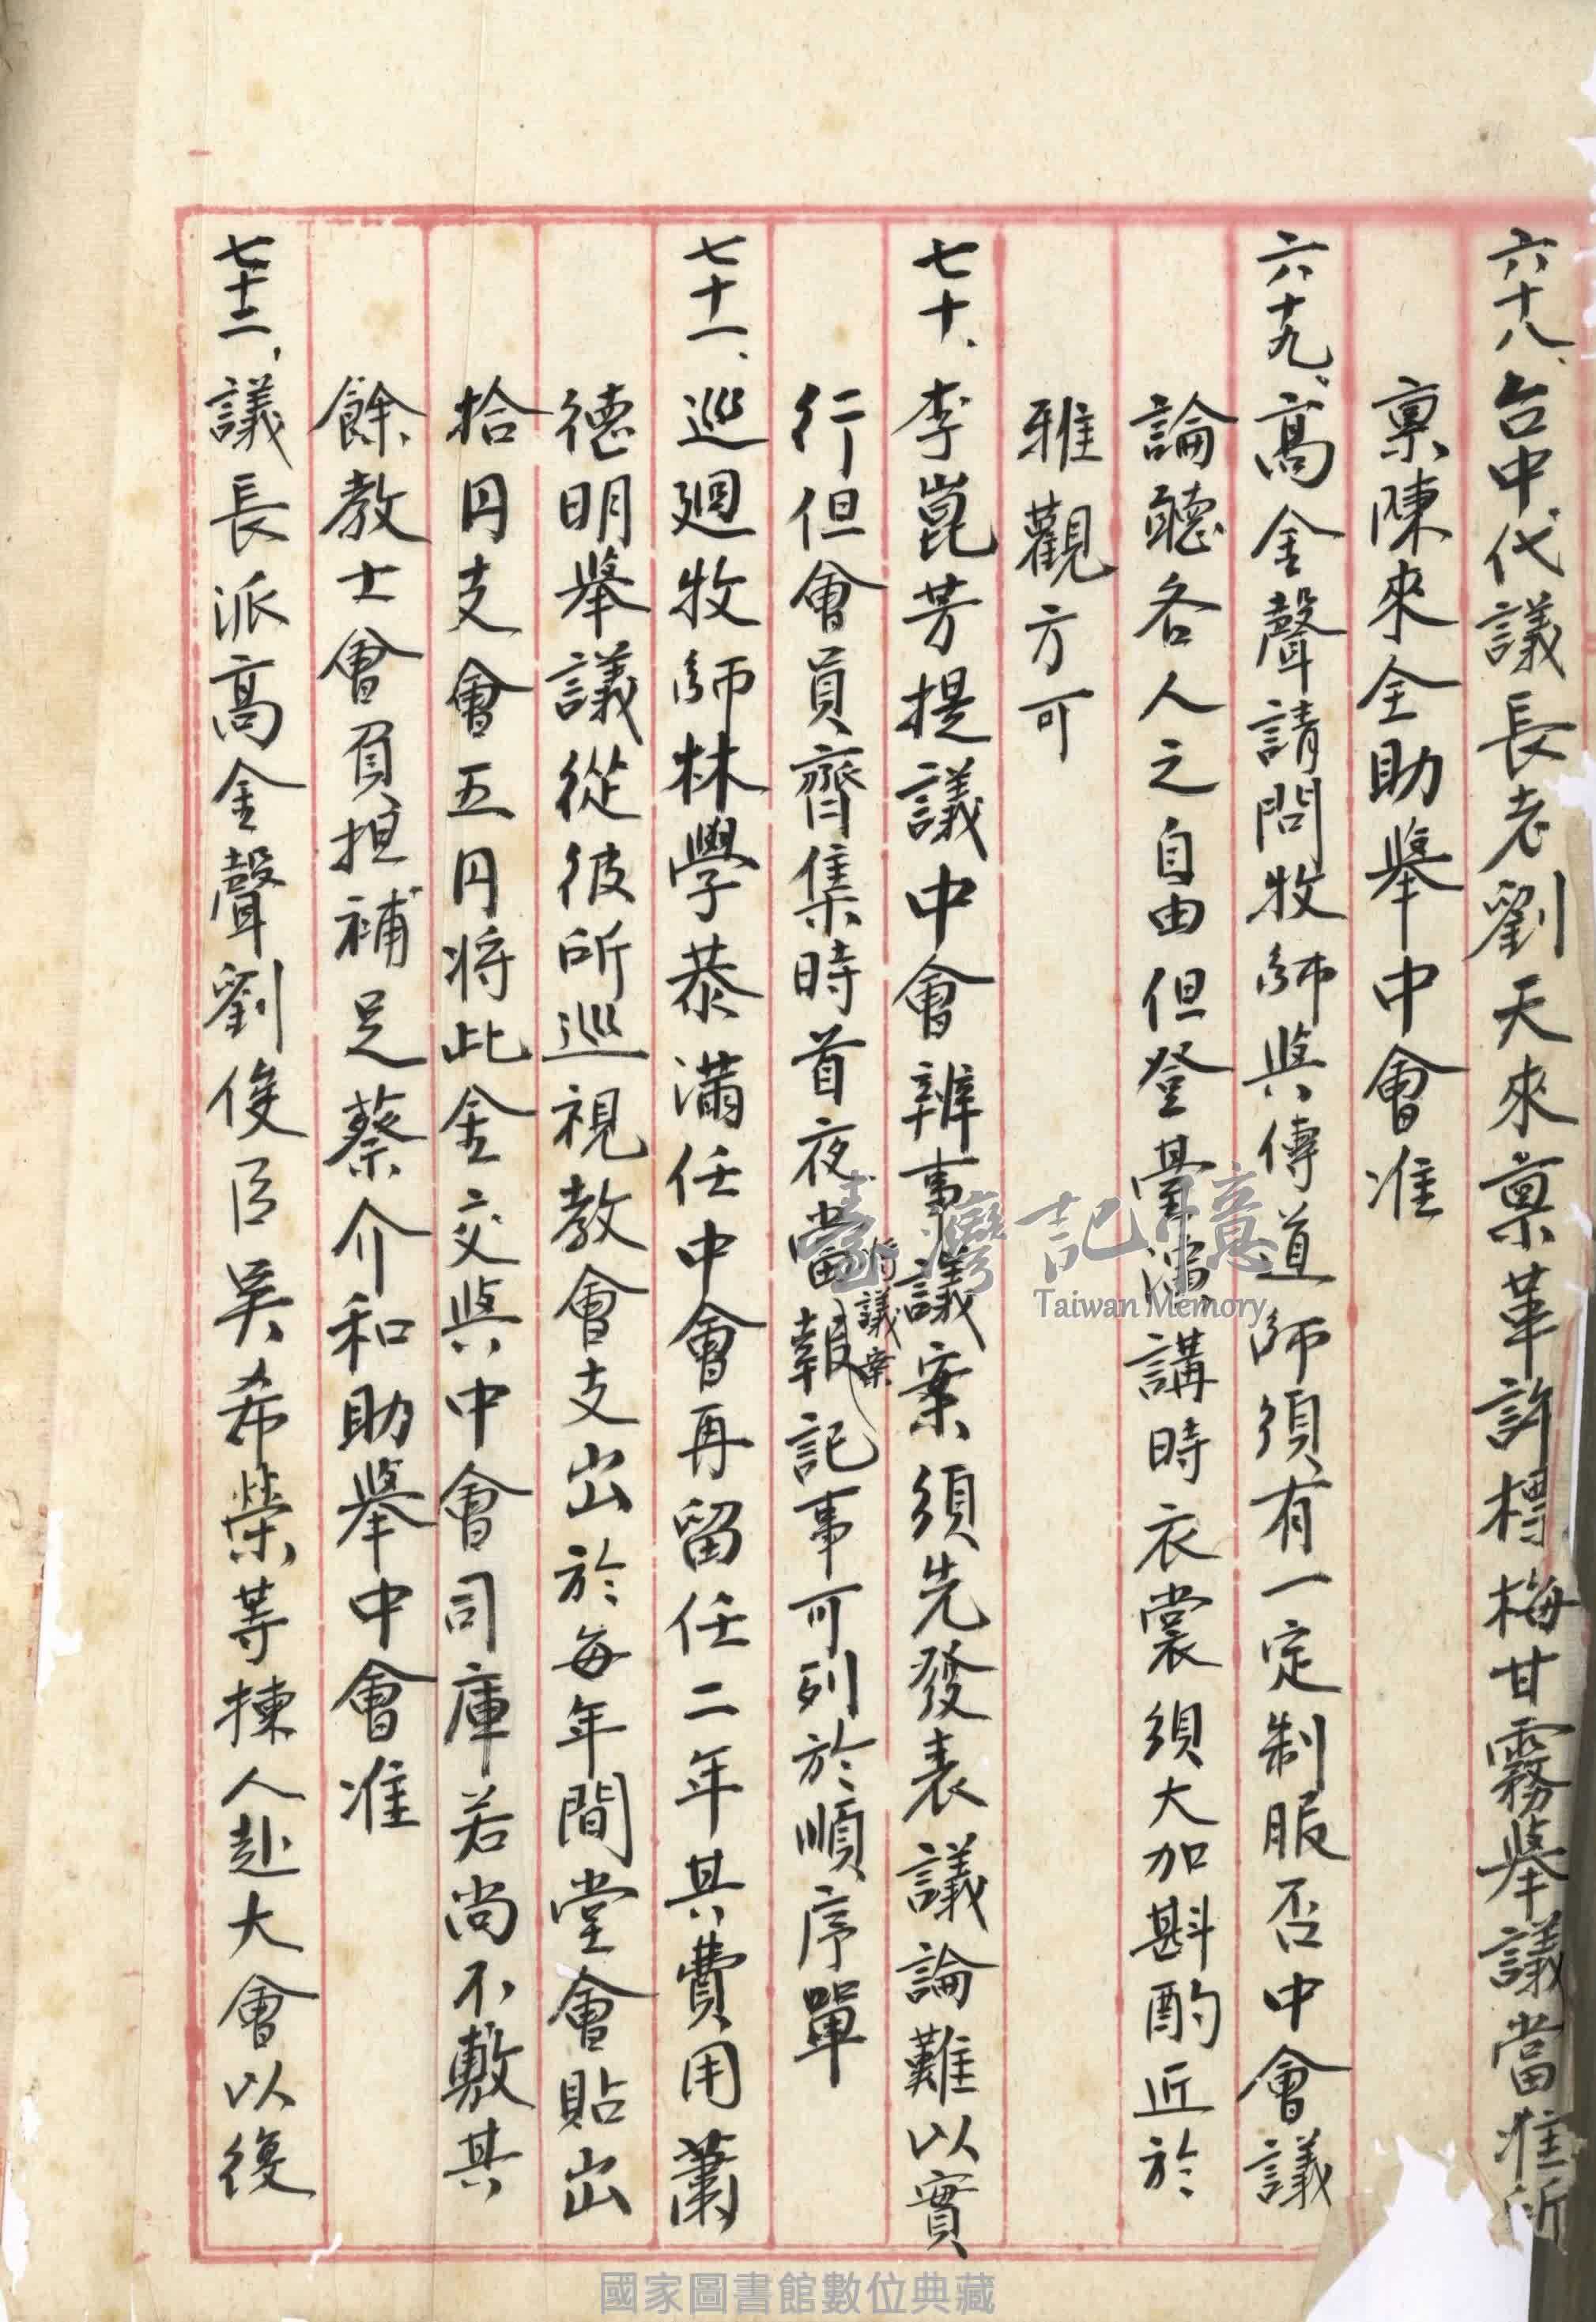 六十八、台中代議長老劉天來稟革許標梅甘霧舉議當准所
稟陳來全助舉中會准
六十九、高金聲請問牧師與傳道師須有一定制服否中會議
論聽各人之自由但登臺演講時衣裳須大加斟酌近於
雅觀方可
七十、李崑芳提議中會辦事議案須先發表議論難以實
行但會員齊集時首夜當報記事可列於順序單
議案
七十一、巡廻牧師林學恭滿任中會再留任二年其費用蕭
德明舉議從彼所巡視教會支出於每年間堂會貼出
拾円支會五円将此金交與中會司庫若尚不敷其
餘教士會負担補足蔡介和助舉中會准
七十二、議長派高金聲劉俊臣吳希榮等揀人赴大會以後
臺灣記憶
Taiwan Memory
國家圖書館數位典藏